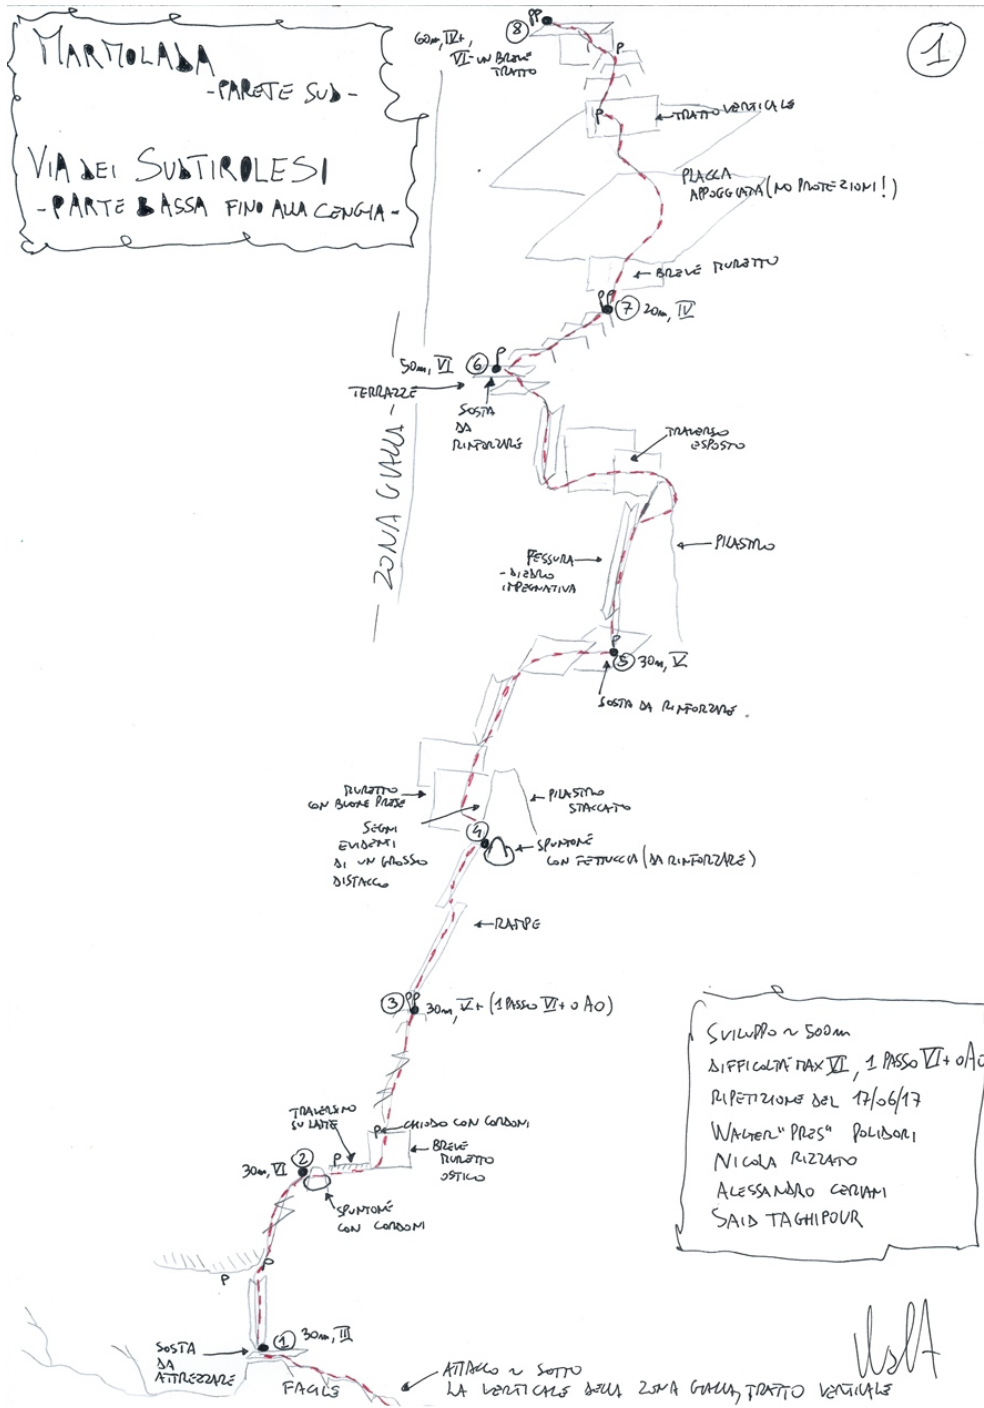 MARMOLADA
- PARETE SUD -
VIA DEI SUDTIROLESI
- PARTE BASSA FINO ALLA CENGIA -
1
8
PP
60m, IV+,
VI- UN BREVE
TRATTO
P
P
TRATTO VERTICALE
PLACCA
APPOGGIATA (NO PROTEZIONI!)
BREVE MURETTO
PP
7 20m, IV
P
50m, VI 6
TERRAZZE
SOSTA
DA
RINFORZARE
TRAVERSO
ESPOSTO
- ZONA GIALLA -
FESSURA
- DIEDRO
IMPEGNATIVA
PILASTRO
P
5 30m, V
SOSTA DA RINFORZARE.
MURETTO
CON BUONE PRESE
PILASTRO
STACCATO
SEGNI
EVIDENTI
DI UN GROSSO
DISTACCO
4
SPUNTONE
CON FETTUCCIA (DA RINFORZARE)
RAMPE
3 PP 30m, V+ (1 PASSO VI+ o A0)
TRAVERSINO
SU LAME
P CHIODO CON CORDONI
BREVE
MURETTO
OSTICO
30m, VI 2
P
SPUNTONE
CON CORDONI
P P
1 30m, III
SOSTA
DA
ATTREZZARE
FACILE
ATTACCO ~ SOTTO
LA VERTICALE DELLA ZONA GIALLA, TRATTO VERTICALE
SVILUPPO ~ 500m
DIFFICOLTÀ MAX VI, 1 PASSO VI+ o A0
RIPETIZIONE DEL 17/06/17
WALTER "PRES" POLIDORI
NICOLA RIZZATO
ALESSANDRO CERIANI
SAID TAGHIPOUR